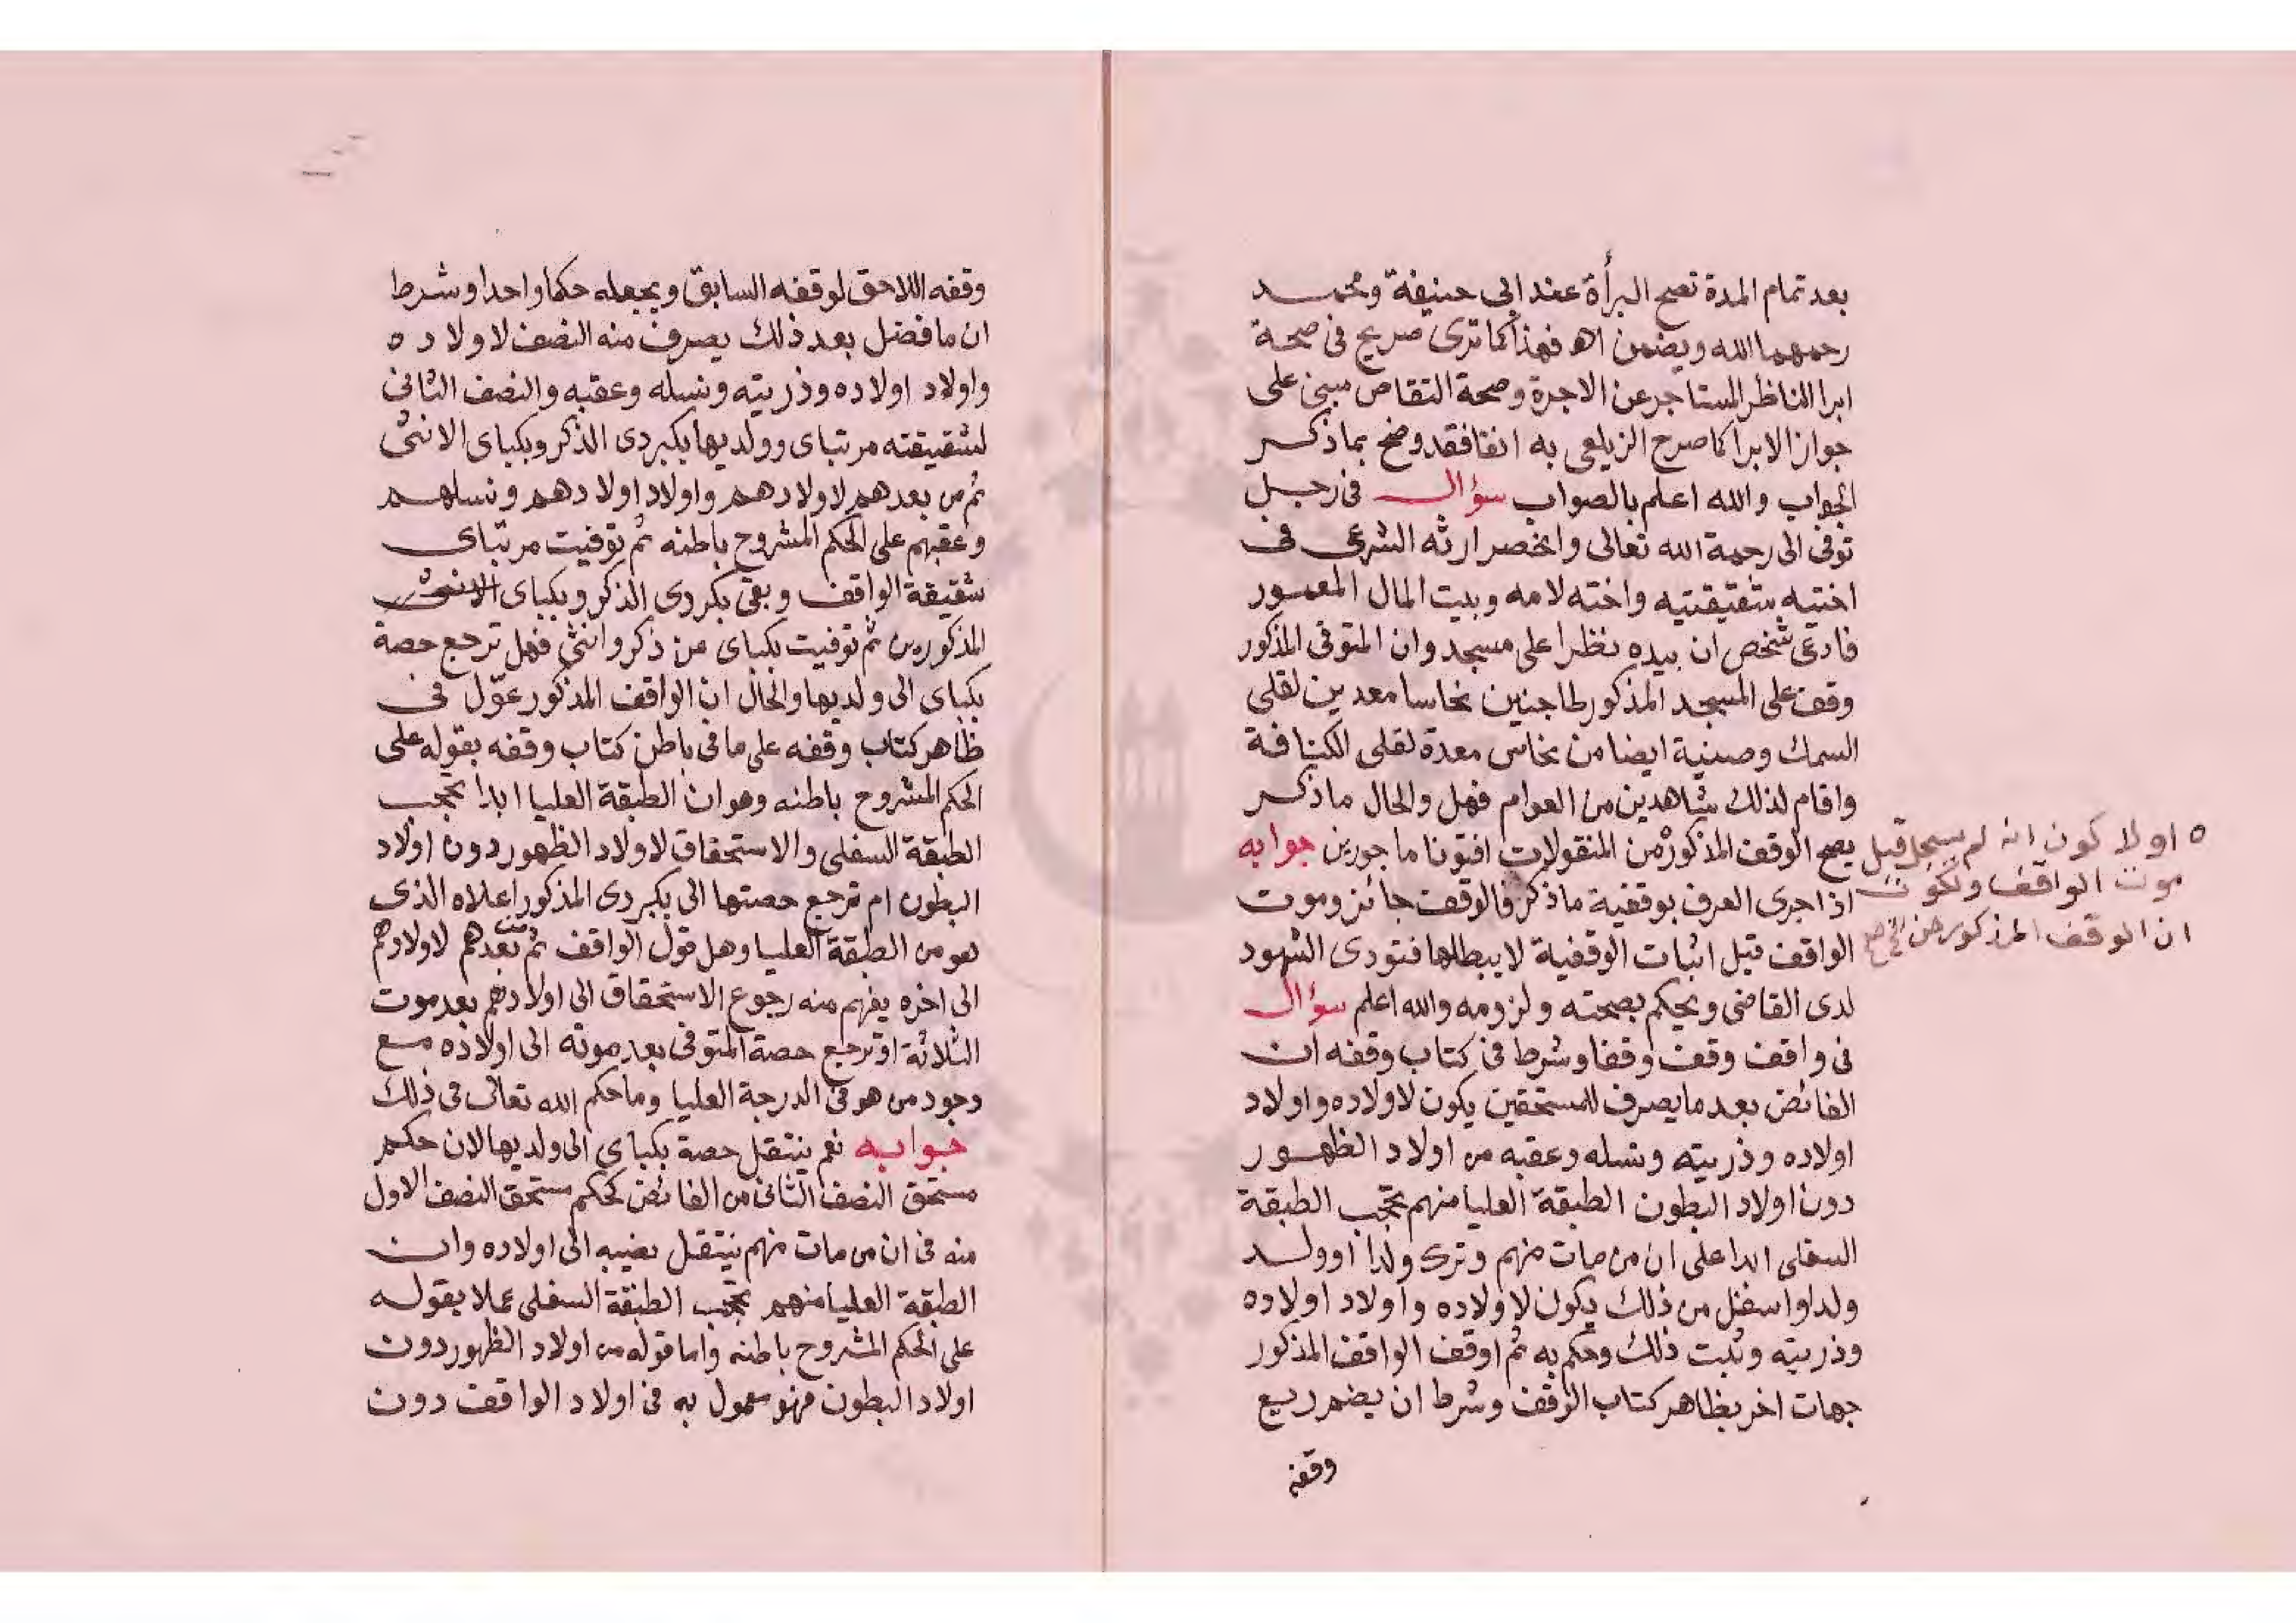 بعد تمام المدة تصح البرأة عند ابى حنيفة ومحمد
رحمهما الله ويضمن اه فهذا كما ترى صريح فى صحة
ابرا الناظر المستاجر عن الاجرة وصحة التقاص مبنى على
جواز الابرا كما صرح الزيلعى به انفا فقد وضح بما ذكر
الجواب والله اعلم بالصواب سؤال فى رجل
توفى الى رحمة الله تعالى وانحصر ارثه الشرعى فى
اختيه شقيقتيه واخته لامه وبيت المال المعمور
فادعى شخص ان بيده نظرا على مسجد وان المتوفى المذكور
وقف على المسجد المذكور طاجنين نحاسا معدين لقلى
السمك وصينية ايضا من نحاس معدة لقلى الكنافة
واقام لذلك شاهدين من العوام فهل والحال ما ذكر
يصح الوقف المذكور من المنقولات افتونا ماجورين جوابه
اذا جرى العرف بوقفية ما ذكر فالوقف جائز وموت
الواقف قبل اثبات الوقفية لا يبطلها فتودى الشهود
لدى القاضى ويحكم بصحته ولزومه والله اعلم سؤال
فى واقف وقف وقفا وشرط فى كتاب وقفه ان
الفائض بعد ما يصرف للمستحقين يكون لاولاده واولاد
اولاده وذريته ونسله وعقبه من اولاد الظهور
دون اولاد البطون الطبقة العليا منهم تحجب الطبقة
السفلى ابدا على ان من مات منهم وترك ولدا او ولد
ولد او اسفل من ذلك يكون لاولاده واولاد اولاده
وذريته وثبت ذلك وحكم به ثم اوقف الواقف المذكور
جهات اخر بظاهر كتاب الوقف وشرط ان يضم ريع
وقفه
ه او لا كون انه لم يسجل قبل
موت الواقف ولكون
ان الوقف المذكور من
وقفه اللاحق لوقفه السابق ويجعله حكما واحدا وشرط
ان ما فضل بعد ذلك يصرف منه النصف لاولاده
واولاد اولاده وذريته ونسله وعقبه والنصف الثانى
لشقيقته مرتباى وولديها بكبردى الذكر وبكباى الانثى
ثم من بعدهم لاولادهم واولاد اولادهم ونسلهم
وعقبهم على الحكم المشروح باطنه ثم توفيت مرتباى
شقيقة الواقف وبقى بكردى الذكر وبكباى الانثى
المذكورين ثم توفيت بكباى عن ذكر وانثى فهل ترجع حصة
بكباى الى ولديها والحال ان الواقف المذكور عوّل فى
ظاهر كتاب وقفه على ما فى باطن كتاب وقفه بقوله على
الحكم المشروح باطنه وهو ان الطبقة العليا ابدا تحجب
الطبقة السفلى والاستحقاق لاولاد الظهور دون اولاد
البطون ام ترجع حصتها الى بكبردى المذكور اعلاه الذى
هو من الطبقة العليا وهل قول الواقف ثم من بعدهم لاولادهم
الى اخره يفهم منه رجوع الاستحقاق الى اولادهم بعد موت
الثلاثة او ترجع حصة المتوفى بعد موته الى اولاده مع
وجود من هو فى الدرجة العليا وما حكم الله تعالى فى ذلك
جوابه نعم ينتقل حصة بكباى الى ولديها لان حكم
مستحق النصف الثانى من الفائض كحكم مستحق النصف الاول
منه فى ان من مات منهم ينتقل نصيبه الى اولاده وان
الطبقة العليا منهم تحجب الطبقة السفلى عملا بقوله
على الحكم المشروح باطنه واما قوله من اولاد الظهور دون
اولاد البطون فهو معمول به فى اولاد الواقف دون